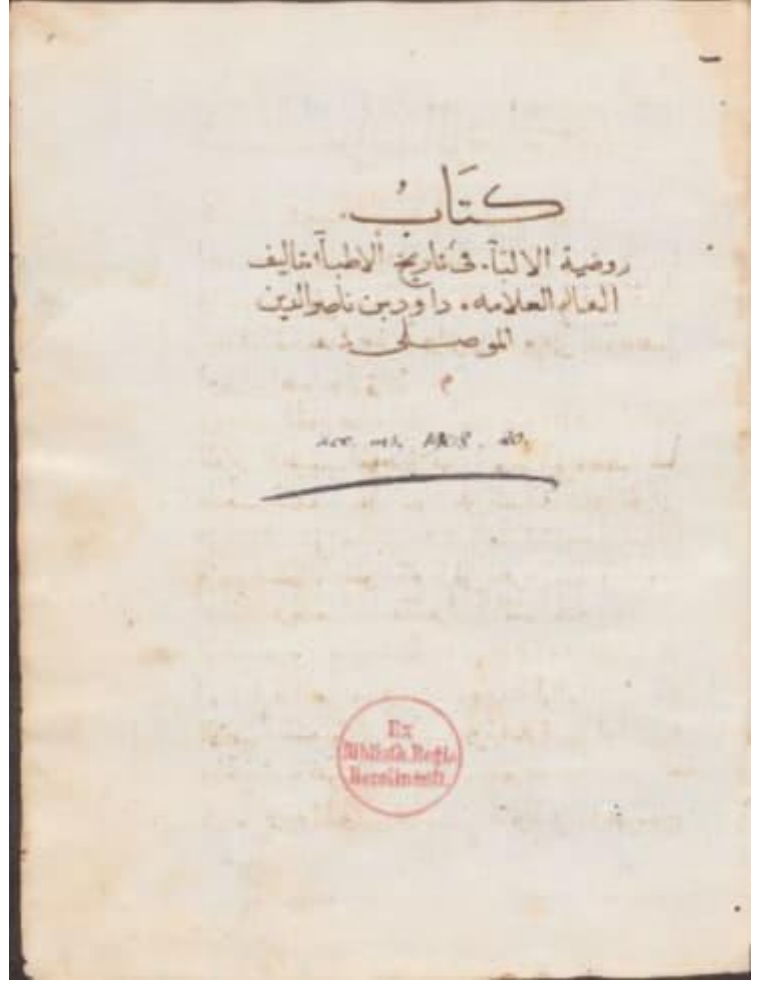 كتَابُ
روضية الالبآ. فى تاريخ الاطبآ، تاليف
العالم العلامه. داود بن ناصر الدين
الموصلى
م
acc. ms. 1908. 20.
Ex
Biblioth. Regia
Berolinensi.